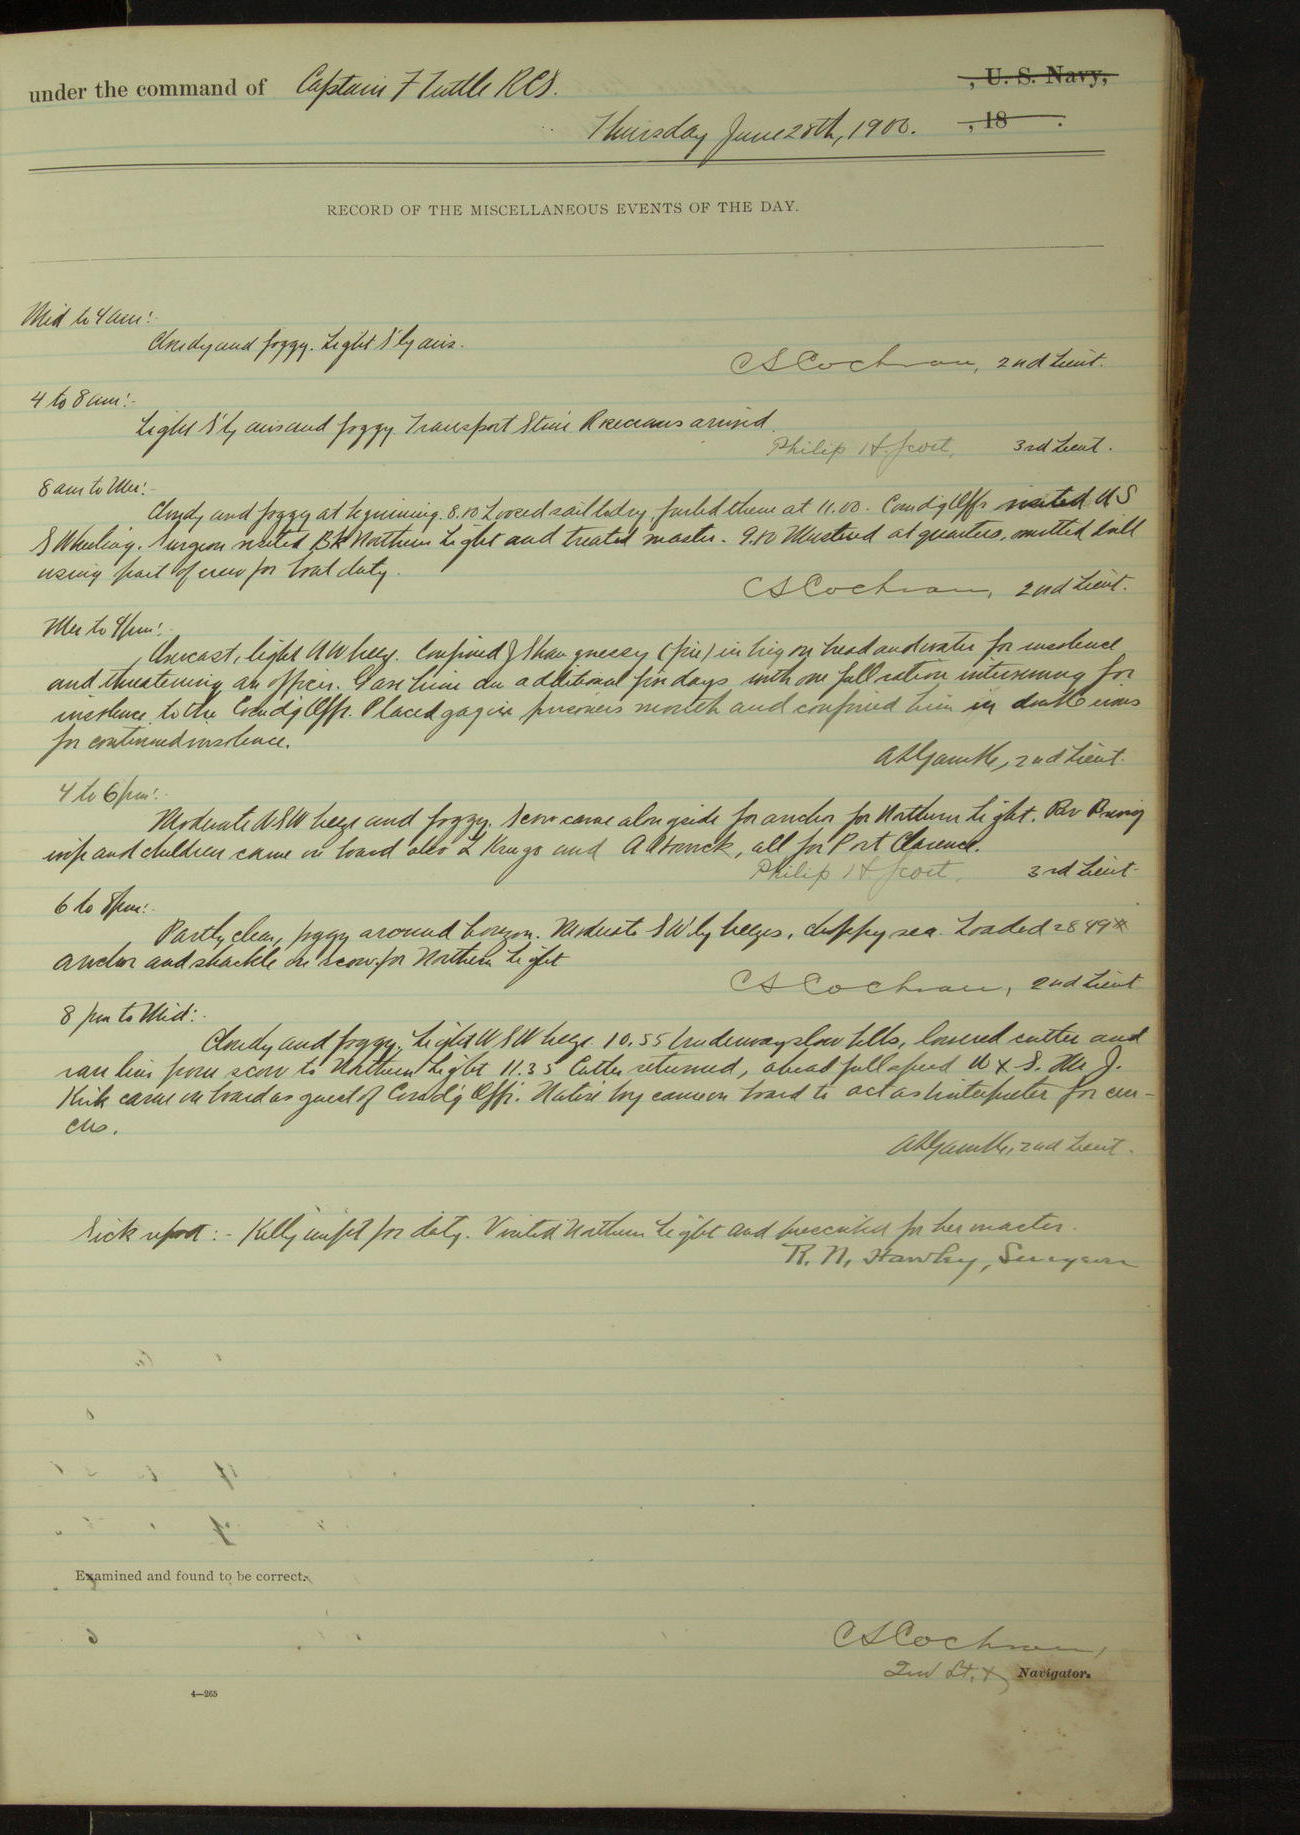 under the command of Captain F Tuttle RCS. , U. S. Navy,
Thursday June 28th, 1900. , 18 .
RECORD OF THE MISCELLANEOUS EVENTS OF THE DAY.
Mid to 4 am:-
Cloudy and foggy. Light S'ly airs.
C S Cochran, 2nd Lieut.
4 to 8 am:-
Light S'ly airs and foggy. Transport Stmr arrived.
Philip H. Scott, 3rd Lieut.
8 am to Mer:-
Cloudy and foggy at beginning. 8.10 Loosed sail to dry, furled them at 11.00. Comdg Offr visited U S
S Wheeling. Surgeon visited Bk Northern Light and treated master. 9.10 Mustered at quarters, omitted drill
using part of crew for boat duty.
C S Cochran, 2nd Lieut.
Mer to 4 pm:-
Overcast, light NW breeze. Confined J Shaughnessy in brig on bread and water for insolence
and threatening an officer. Gave him an additional five days with one full ration intervening for
insolence to the Comdg Offr. Placed gag in prisoners mouth and confined him in double irons
for continued insolence.
2nd Lieut.
4 to 6 pm:-
Moderate WSW breeze and foggy. Scow came alongside for anchor for Northern Light. Rev
wife and children came on board also L and A, all for Port Clarence.
Philip H. Scott, 3rd Lieut.
6 to 8 pm:-
Partly clear, foggy around horizon. Moderate SW'ly breezes, choppy sea. Loaded 2849#
anchor and shackle on scow for Northern Light
C S Cochran, 2nd Lieut
8 pm to Mid:-
Cloudy and foggy. Light WSW breeze. 10.55 Underway slow bells, lowered cutter and
ran line from scow to Northern Light 11.35 Cutter returned, ahead full speed W x S. Mr J.
Kirk came on board as guest of Comdg Offr. Native boy came on board to act as interpreter for cen-
cus.
2nd Lieut.
Sick report:- Kelly unfit for duty. Visited Northern Light and prescribed for her master.
R. N. Hawley, Surgeon
Examined and found to be correct.
C S Cochran,
2nd Lt. & Navigator.
4—265